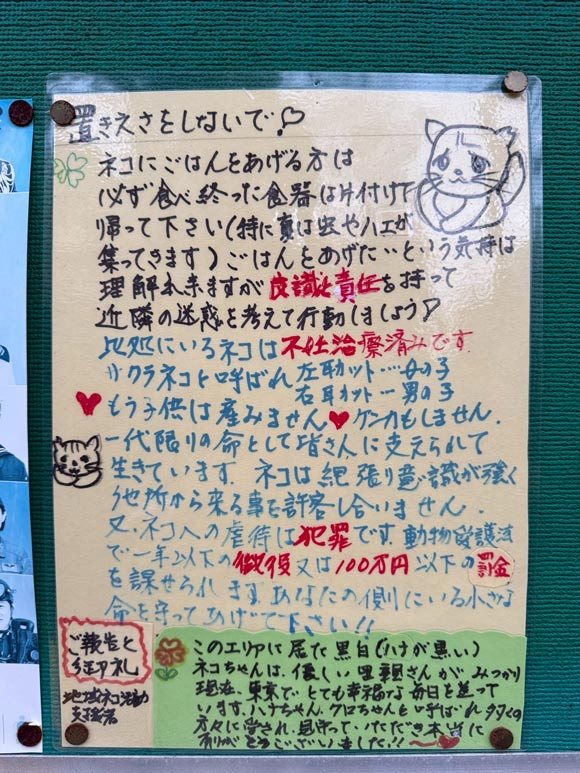 置きえさをしないで!
ネコにごはんをあげる方は
必ず食べ終った食器は片付けて
帰って下さい(特に夏は虫やハエが
集ってきます)ごはんをあげたいという気持は
理解出来ますが良識と責任を持って
近隣の迷惑を考えて行動しましょう
此処にいるネコは不妊治療済みです.
サクラネコと呼ばれ左耳カット…女の子
右耳カット…男の子
もう子供は産みません♥ケンカもしません.
一代限りの命として皆さんに支えられて
生きています.ネコは縄張り意識が強く
他所から来る事を許容し合いません.
又、ネコへの虐待は犯罪です.動物愛護法
で一年以下の懲役又は100万円以下の罰金
を課せられます.あなたの側にいる小さな
命を守ってあげて下さい!!
ご報告と
御礼
地域ネコ活動
支援者
このエリアに居た黒白(ハナが黒い)
ネコちゃんは、優しい里親さんがみつかり
現在、東京でとても幸福な毎日を送って
います.ハナちゃん、クロちゃんと呼ばれ多くの
方々に愛され、見守っていただき本当に
有りがとうございました!!